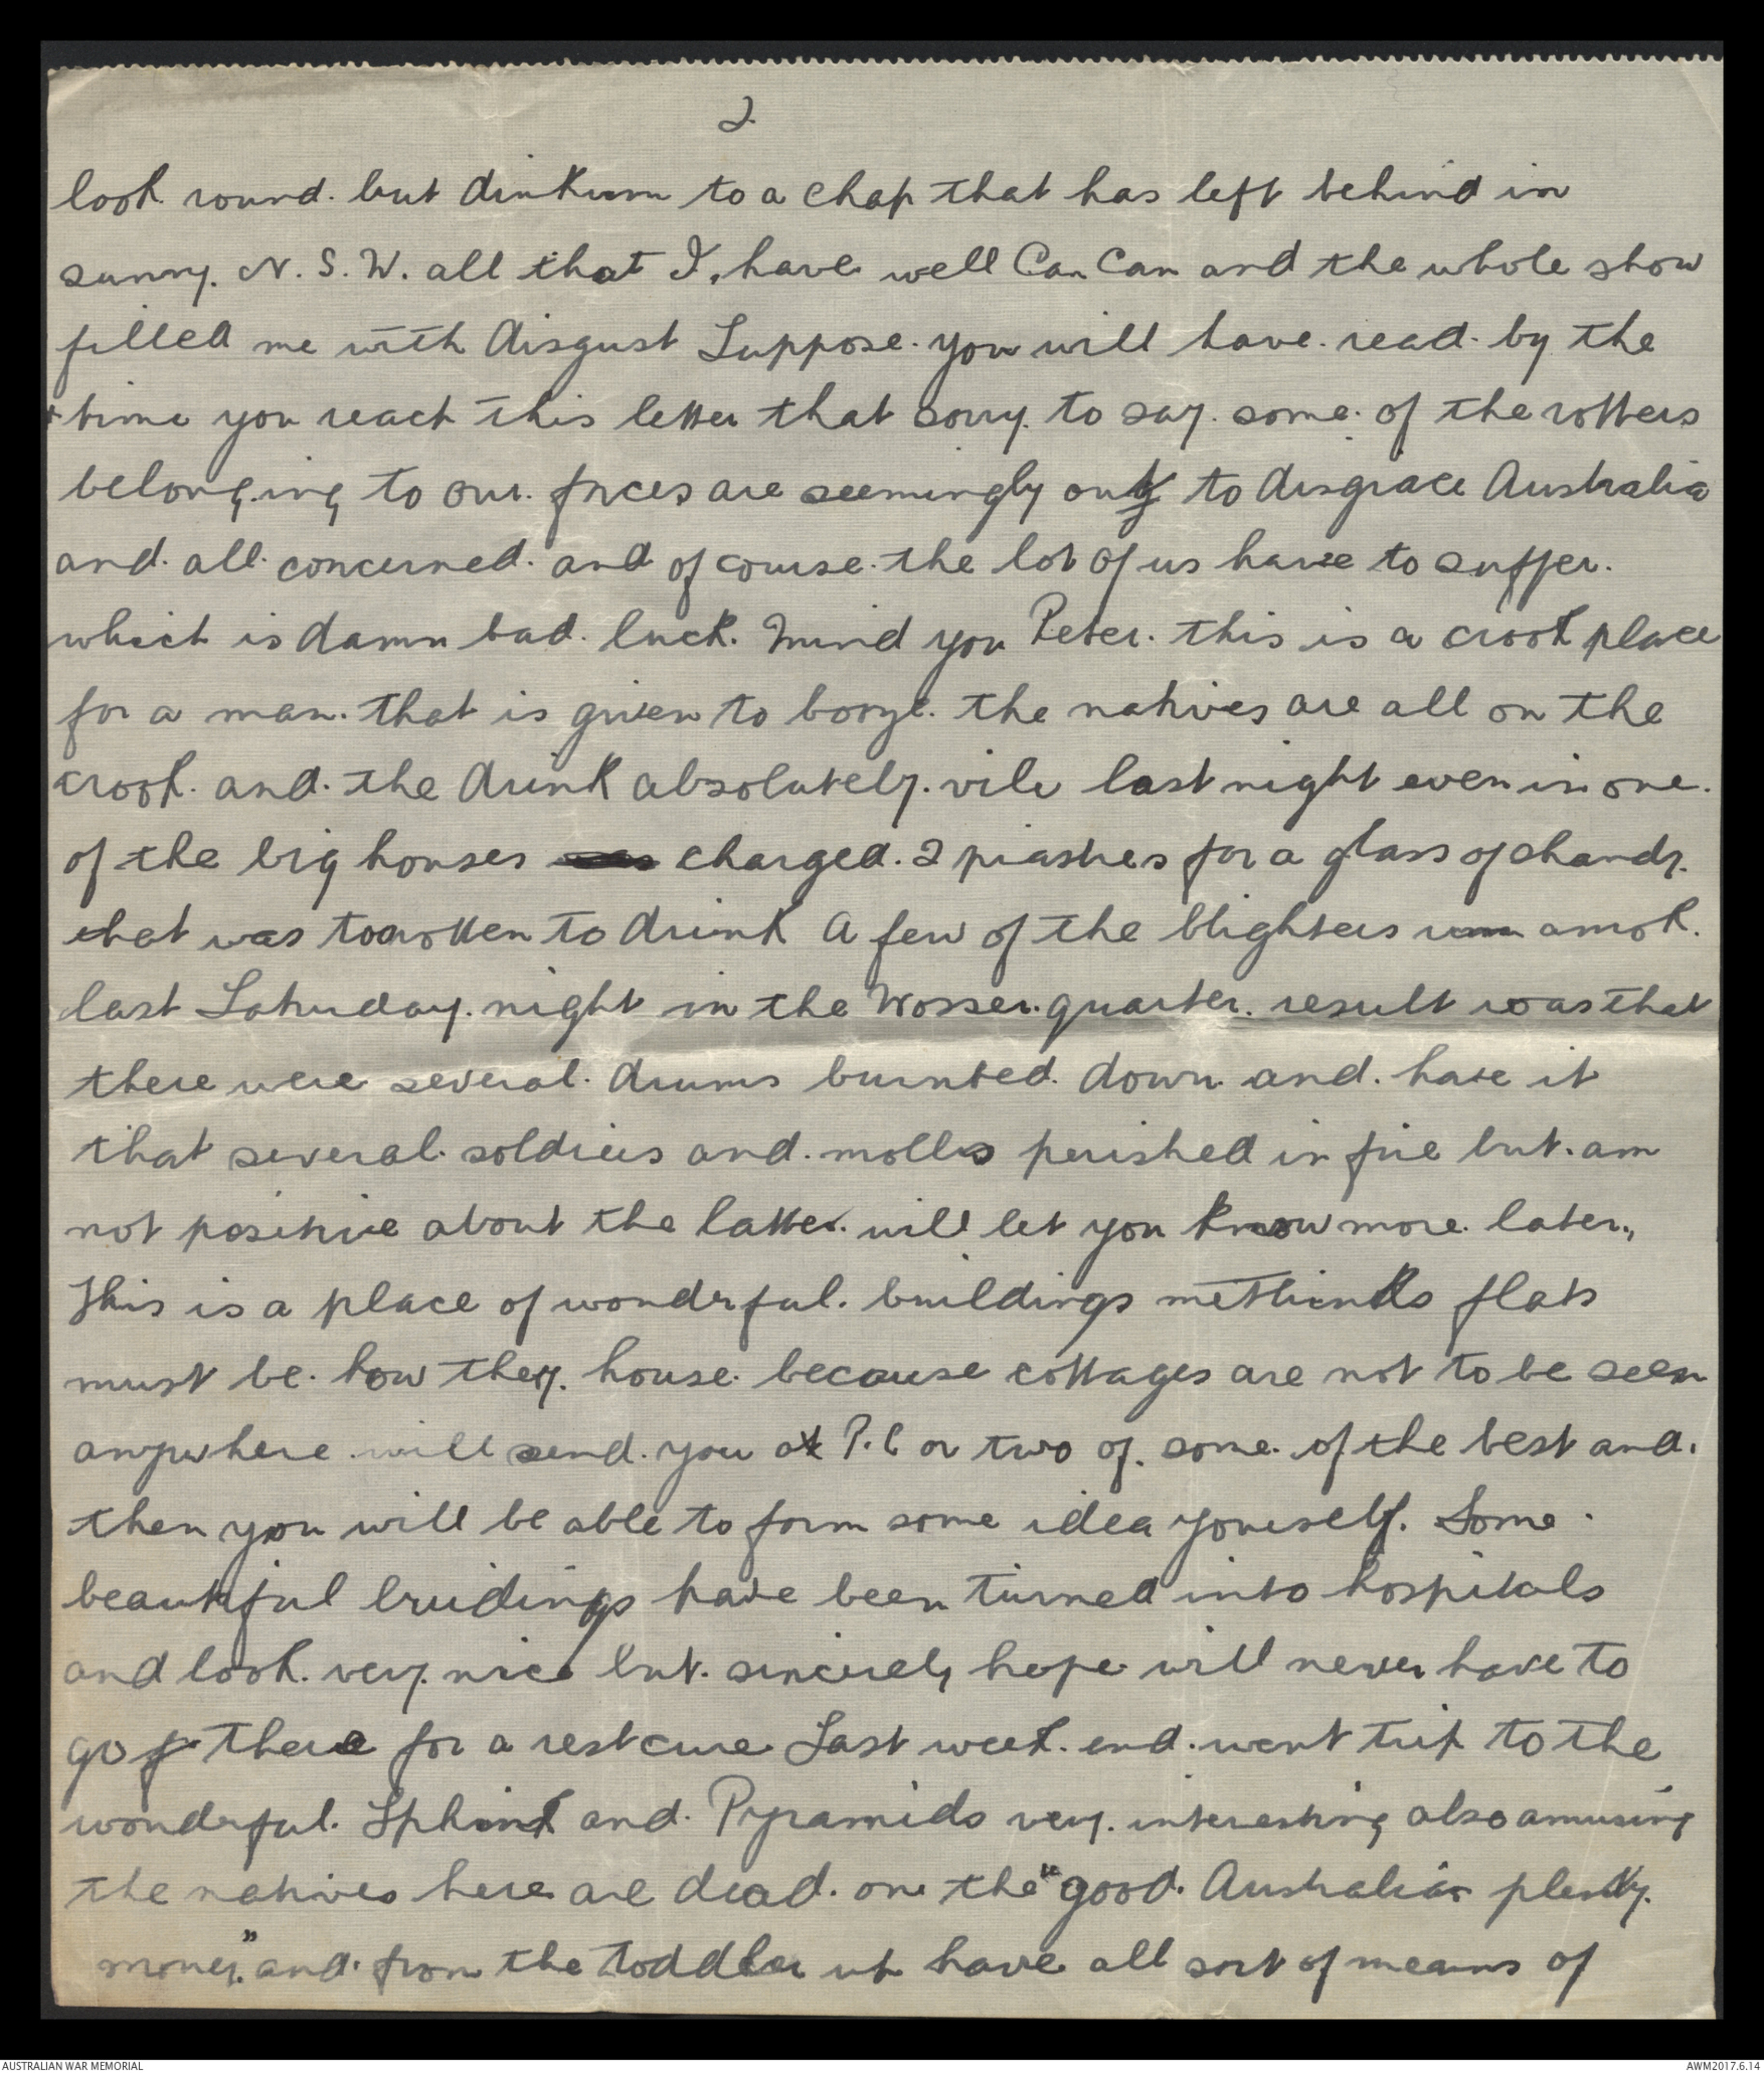 2.
look round. but dinkum to a chap that has left behind in
sunny. N. S. W. all that I, have well Can Can and the whole show
filled me with disgust Suppose. you will have. read. by the
time you reach this letter that sorry. to say. some. of the rotters
belonging to our. forces are seemingly out to disgrace Australia
and. all. concerned. and of course. the lot of us have to suffer.
which is damn bad. luck. Mind you Peter. this is a crook place
for a man. that is given to booze. the natives are all on the
crook. and. the drink absolutely. vile last night even in one.
of the big houses charged. 2 piastres for a glass of shandy.
that was too rotten to drink A few of the blighters run amok.
last Saturday. night in the Wosser. quarter. result was that
there were several. drums burnted. down and. have it
that several. soldiers and. molls perished in fire but. am
not positive about the latter. will let you know more. later.,
This is a place of wonderful. buildings methinks flats
must be. how they. house. because cottages are not to be seen
anywhere will send. you a P.C or two of. some. of the best and.
then you will be able to form some idea yourself. Some.
beautiful bruidings have been turned into hospitals
and look. very. nice but. sincerely hope will never have to
go there for a rest cure Last week. end. went trip to the
wonderful. Sphinx and. Pyramids very. interesting also amusing
the natives here are dead. on the "good. Australian plenty.
money." and. from the toddler up have all sort of means of
AUSTRALIAN WAR MEMORIAL
AWM2017.6.14